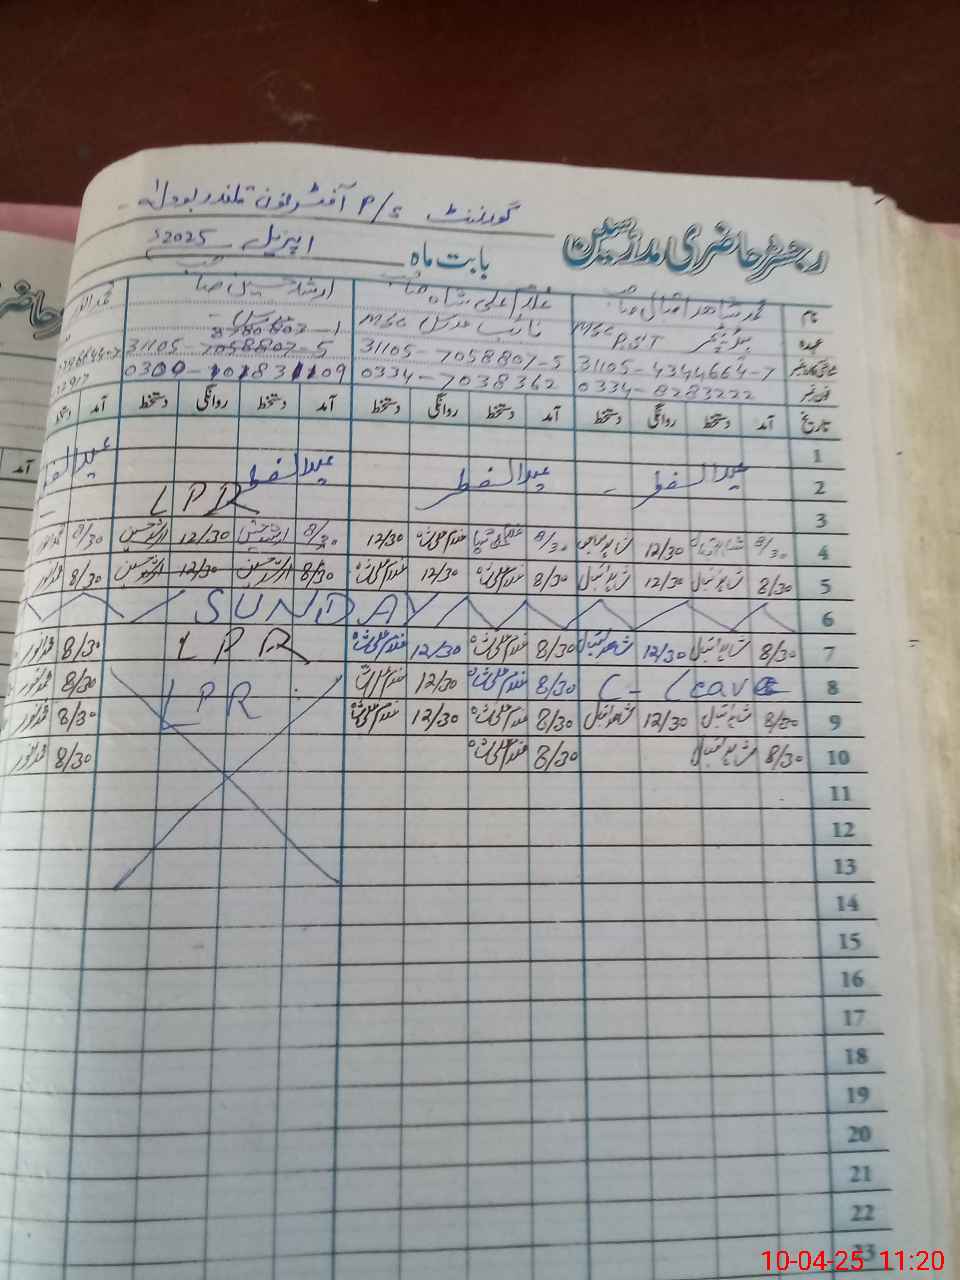 گورنمنٹ P/S آفٹرنون قلندر بودلہ
رجسٹر حاضری مدرسین
بابت ماہ اپریل 2025ء
نام محمد شاھد اقبال صاحب غلام علی شاہ صاحب ارشد حسین صاحب
عہدہ ہیڈ ٹیچر MSc P.S.T نائب مدرس MSc مدرس
31105-4344664-7 31105-7058807-5 31105-7058807-5
فون نمبر 0334-8283222 0334-7038362
تاریخ آمد دستخط روانگی دستخط آمد دستخط روانگی دستخط آمد دستخط روانگی دستخط آمد دستخط
1
2 عیدالفطر عیدالفطر عیدالفطر
3 LPR
4 8/30 شاہد اقبال 12/30 شاہد اقبال 8/30 غلام علی شاہ 12/30 غلام علی شاہ 12/30 8/30 ارشد حسین 12/30 ارشد حسین 8/30
5 8/30 شاہد اقبال 12/30 شاہد اقبال 8/30 غلام علی شاہ 12/30 غلام علی شاہ 8/30 ارشد حسین 12/30 ارشد حسین 8/30
6 SUNDAY
7 8/30 شاہد اقبال 12/30 شاہد اقبال 8/30 غلام علی شاہ 12/30 غلام علی شاہ LPR 8/30
8 C-Leave 8/30 غلام علی شاہ 12/30 غلام علی شاہ LPR 8/30
9 8/30 شاہد اقبال 12/30 شاہد اقبال 8/30 غلام علی شاہ 12/30 غلام علی شاہ 8/30
10 8/30 شاہد اقبال 8/30 غلام علی شاہ 8/30
11
12
13
14
15
16
17
18
19
20
21
22
23
10-04-25 11:20